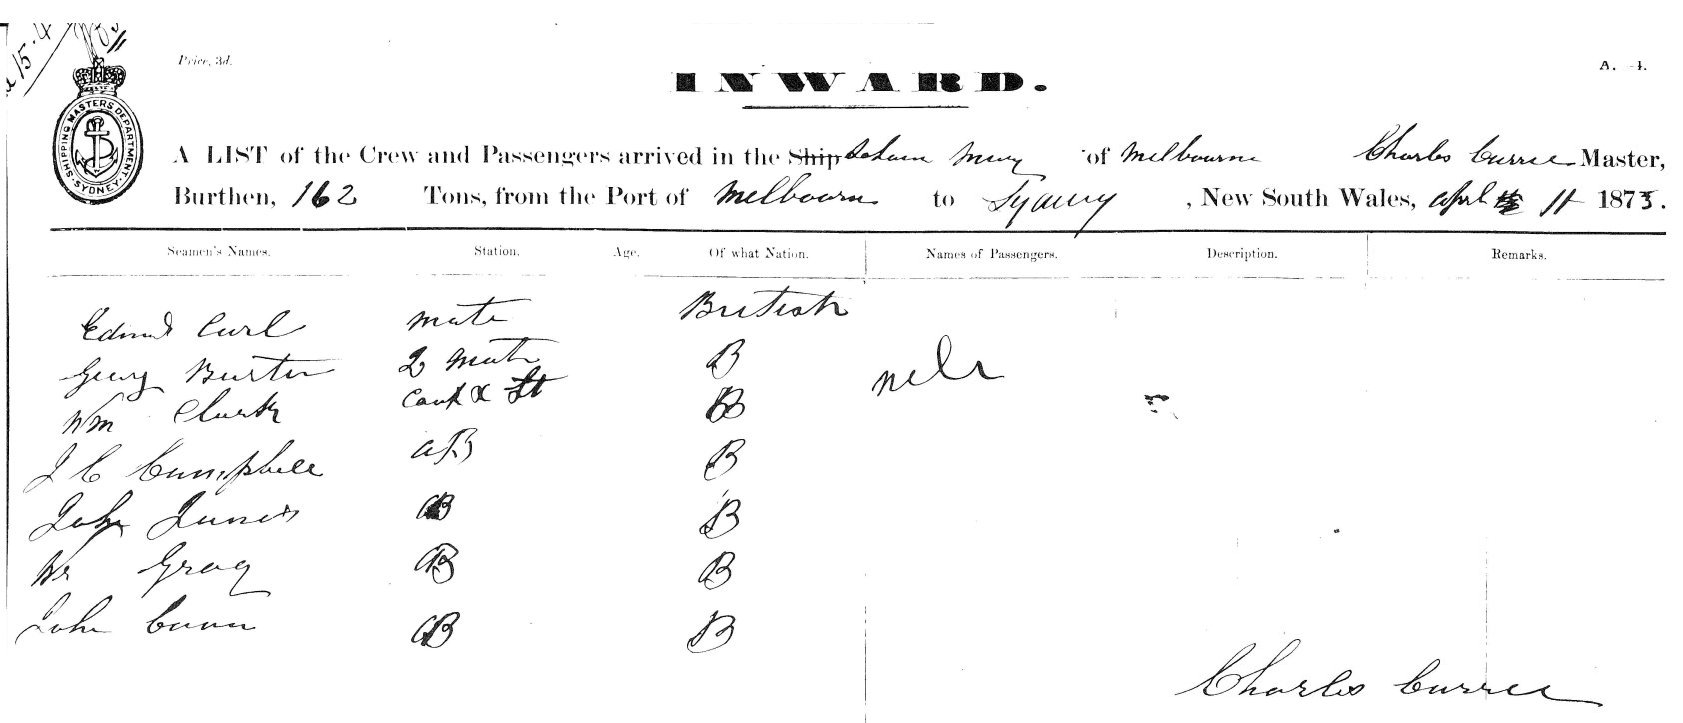 15.4
Price, 3d.
A. 4.
INWARD.
SHIPPING MASTERS DEPARTMENT. SYDNEY.
A LIST of the Crew and Passengers arrived in the Ship Mary of Melbourne Charles Currie Master,
Burthen, 162 Tons, from the Port of Melbourn to Sydney, New South Wales, april 11 1873.
Seamen's Names. Station. Age. Of what Nation. Names of Passengers. Description. Remarks.
Edmd Curl mate British
Georg Burton 2 mate B
Wm Clark Cook & St B
nele
J C Campbell aB B
John Junes AB B
Wm Gray AB B
John Cunn AB B
Charles Currie